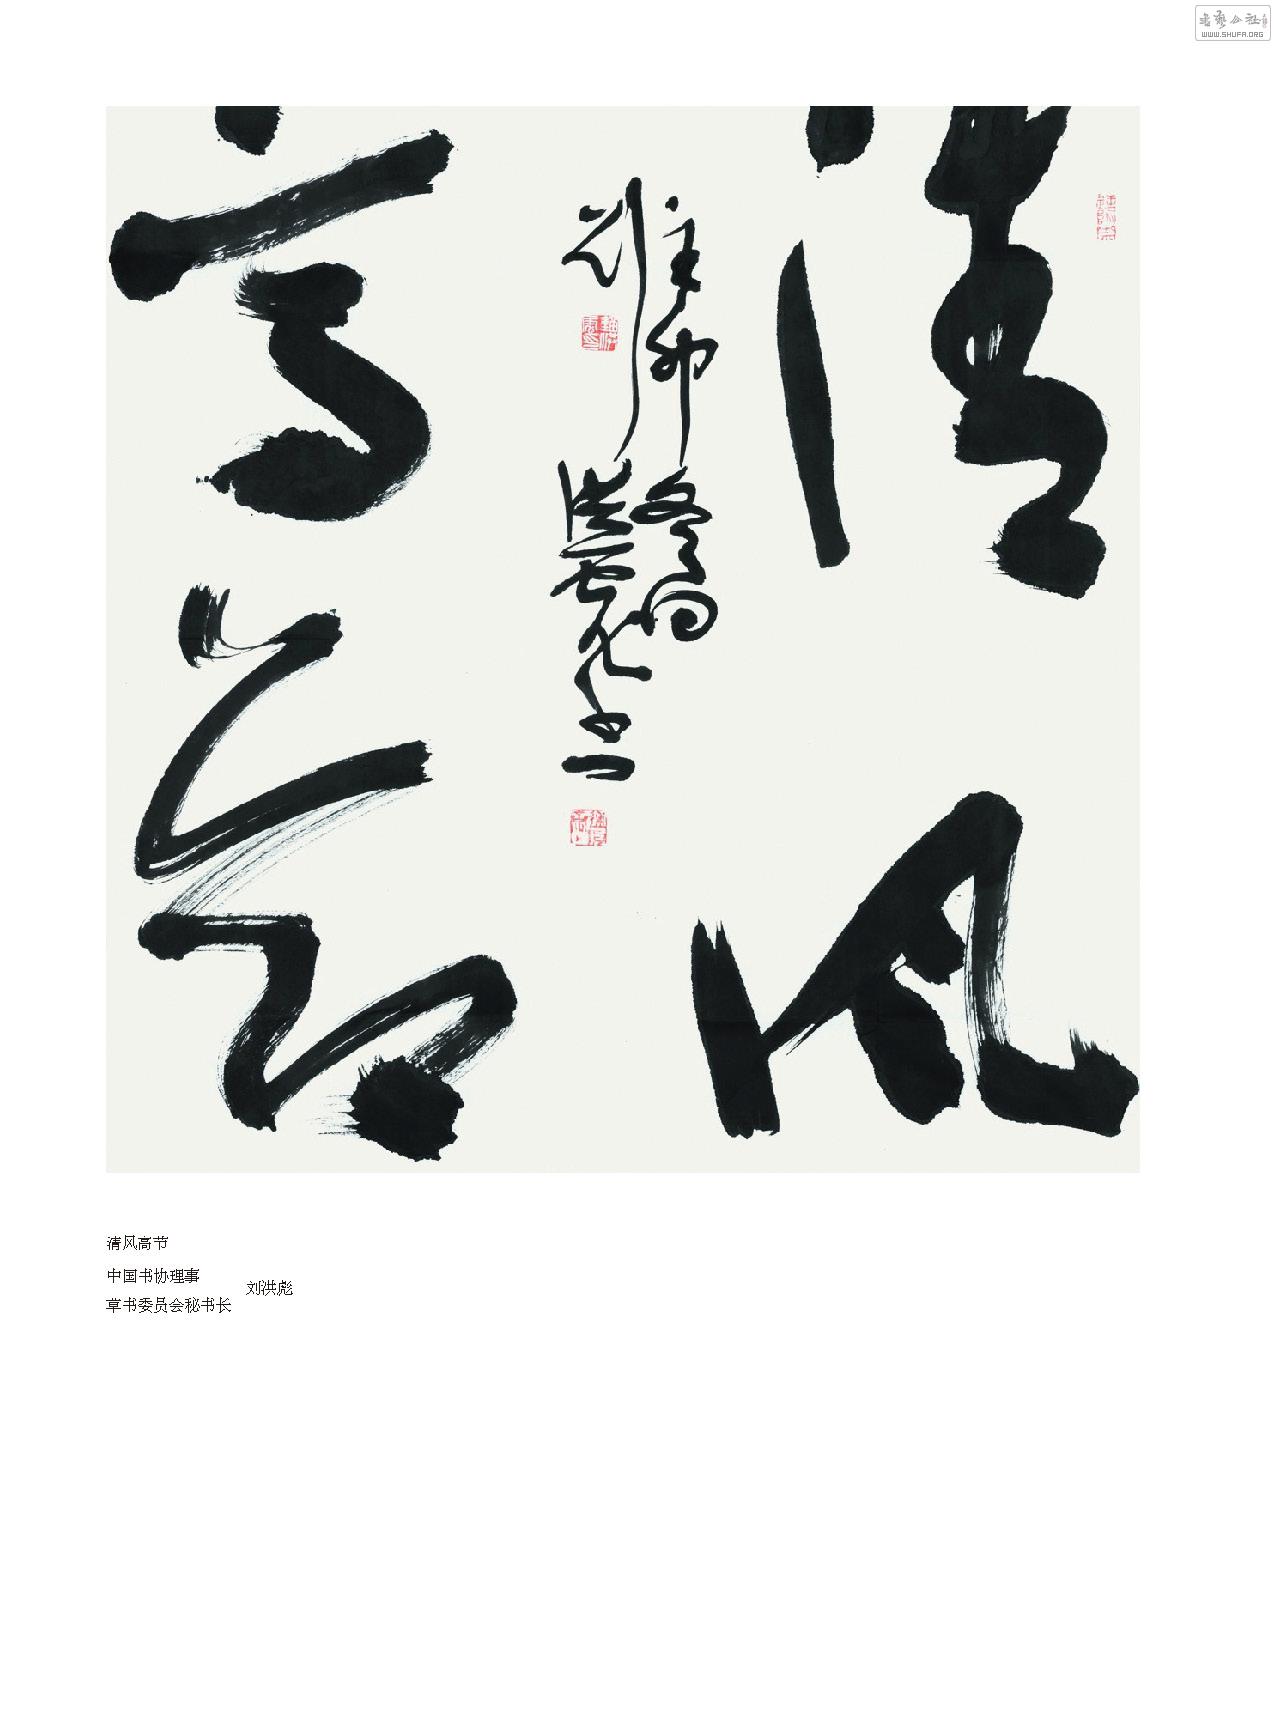 清风
高节
辛卯冬月
刘洪彪
清风高节
中国书协理事
草书委员会秘书长
刘洪彪
书艺公社
WWW.SHUFA.ORG